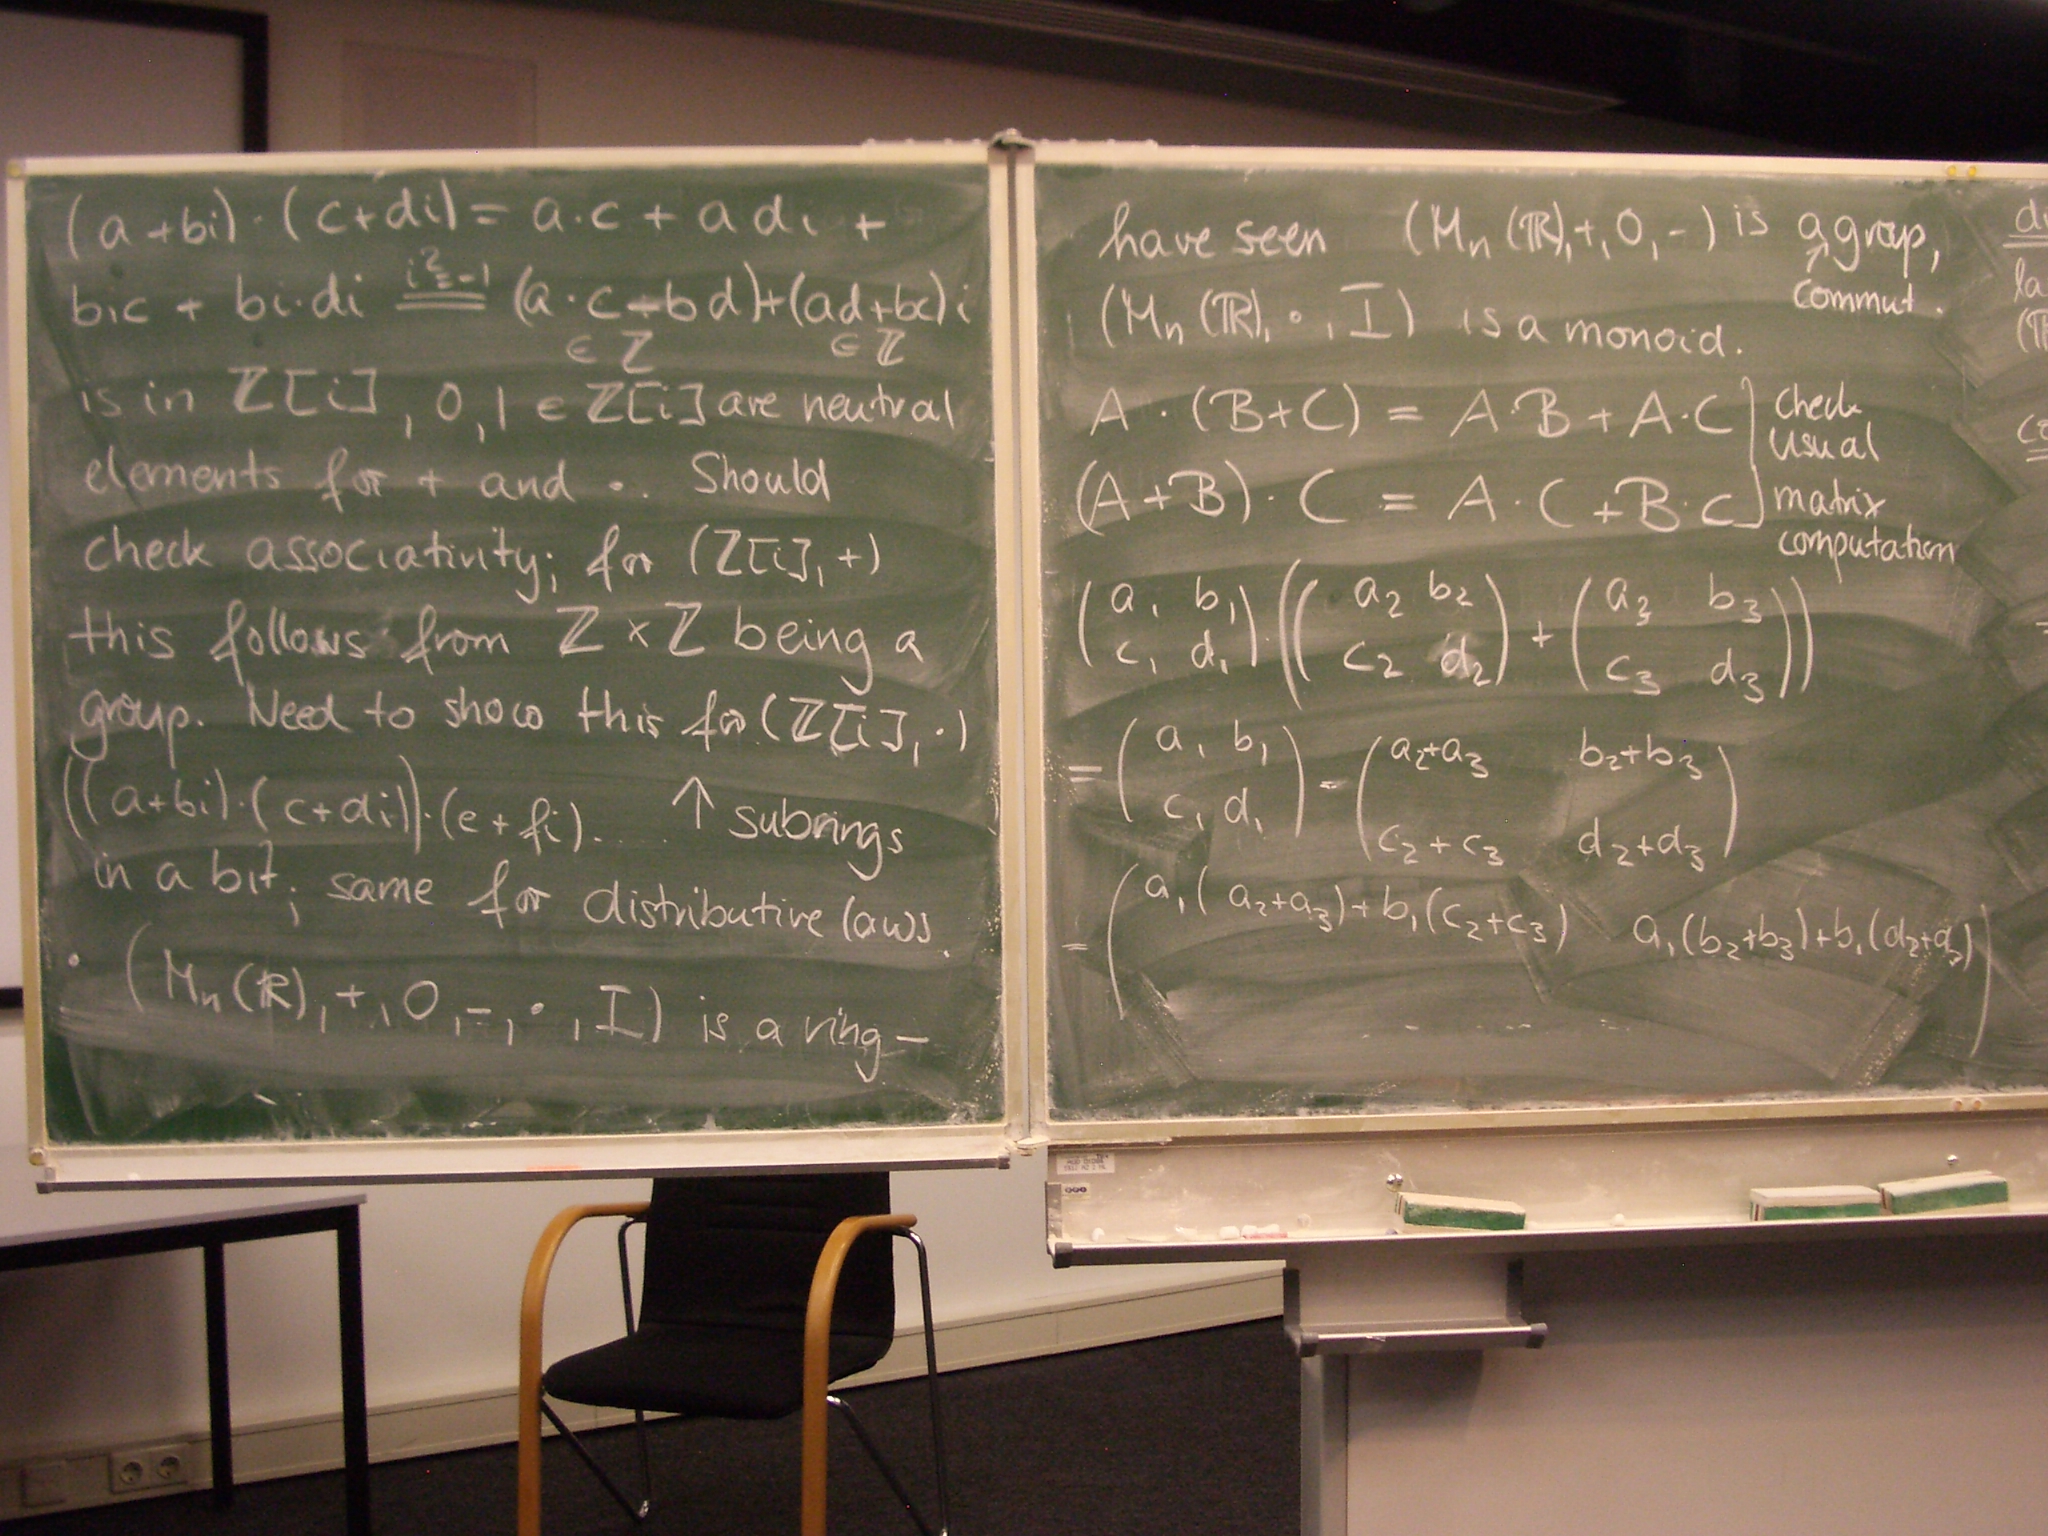 (a+bi)·(c+di) = a·c + adi +
bic + bi·di = i²=-1 (a·c-bd)+(ad+bc)i
∈ ℤ ∈ ℤ
is in ℤ[i], 0,1 ∈ ℤ[i] are neutral
elements for + and ·. Should
check associativity; for (ℤ[i],+)
this follows from ℤ×ℤ being a
group. Need to show this for (ℤ[i],·)
((a+bi)·(c+di))·(e+fi)..... ↑ subrings
in a bit; same for distributive laws.
· (Mn(ℝ),+,0,-,·,I) is a ring –
have seen (Mn(ℝ),+,0,-) is a group,
commut.
(Mn(ℝ),·,I) is a monoid.
A·(B+C) = A·B+A·C
(A+B)·C = A·C+B·C
check
usual
matrix
computation
(a₁ b₁
c₁ d₁)·((a₂ b₂
c₂ d₂)+(a₃ b₃
c₃ d₃))
=(a₁ b₁
c₁ d₁)·(a₂+a₃ b₂+b₃
c₂+c₃ d₂+d₃)
=(a₁(a₂+a₃)+b₁(c₂+c₃) a₁(b₂+b₃)+b₁(d₂+d₃)
- - - - - -)